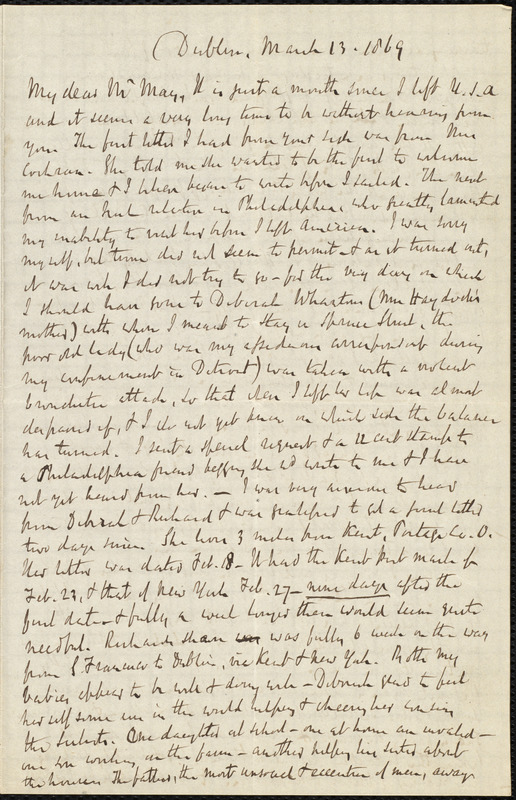 Dublin, March 13. 1869
My dear Mr May, It is just a month since I left U.S.A
and it seems a very long time to be without hearing from
you. The first letter I had from your side was from Mrs
Cochran. She told me she wanted to be the first to welcome
me home & I when began to write before I sailed. The next
from an relative in Philadelphia, who greatly lamented
my inability to visit her before I left America. I was sorry
myself, but time did not seem to permit & as it turned out,
it was well I did not try to go - for the very day on which
I should have gone to Deborah Wharton (Mrs Haydock's
mother) with whom I meant to stay in Spruce Street, the
poor old lady (who was my affectionate correspondent during
my confinement in Detroit) was taken with a violent
bronchitis attack, so that when I left her life was almost
despaired of, & I do not yet know on which side the balance
has turned. I sent a special request & a 12 cent stamp to
a Philadelphia friend begging she wd write to me & I have
not yet heard from her. — I was very anxious to hear
from Deborah & Richard & was gratified to get a first letter
two days since. She lives 3 miles from Kent, Portage Co. O.
Her letter was dated Feb. 18 - It had the Kent post mark of
Feb. 23, & that of New York Feb. 27 - nine days after the
first date - & fully a week longer than would seem quite
needful. Richard's was fully 6 weeks on the way
from S Francisco to Dublin, via Kent & New York. Both my
babies appear to be well & doing well - Deborah glad to feel
herself some use in the world helping & cheering her cousins
the . One daughter at school - one at home an invalid -
one son working on the farm - another helping his sister about
the house. The father, the most unsocial & eccentric of men, away